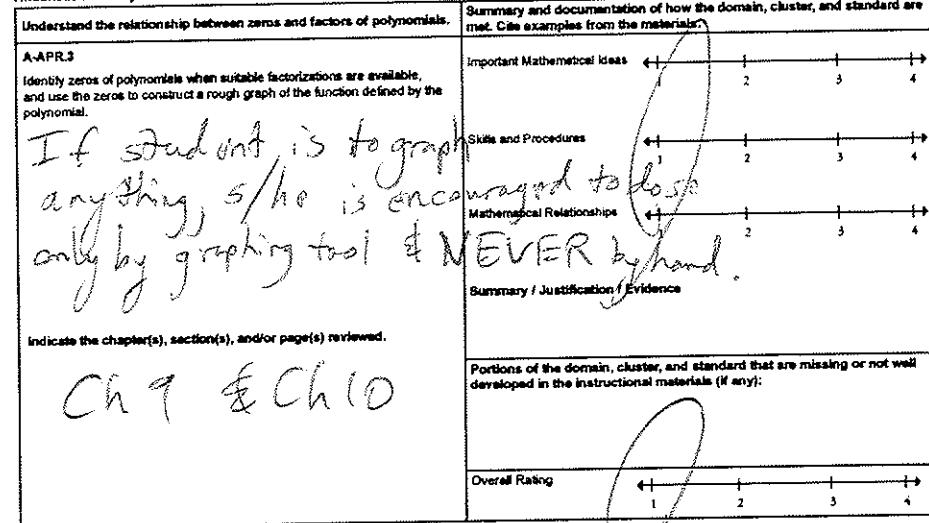 Understand the relationship between zeros and factors of polynomials.
A-APR.3
Identify zeros of polynomials when suitable factorizations are available,
and use the zeros to construct a rough graph of the function defined by the
polynomial.
If student is to graph
anything, s/he is encouraged to do so
only by graphing tool & NEVER by hand.
Indicate the chapter(s), section(s), and/or page(s) reviewed.
Ch 9 & Ch 10
Summary and documentation of how the domain, cluster, and standard are
met. Cite examples from the materials.
Important Mathematical Ideas
1 2 3 4
Skills and Procedures
1 2 3 4
Mathematical Relationships
1 2 3 4
Summary / Justification / Evidence
Portions of the domain, cluster, and standard that are missing or not well
developed in the instructional materials (if any):
Overall Rating
1 2 3 4